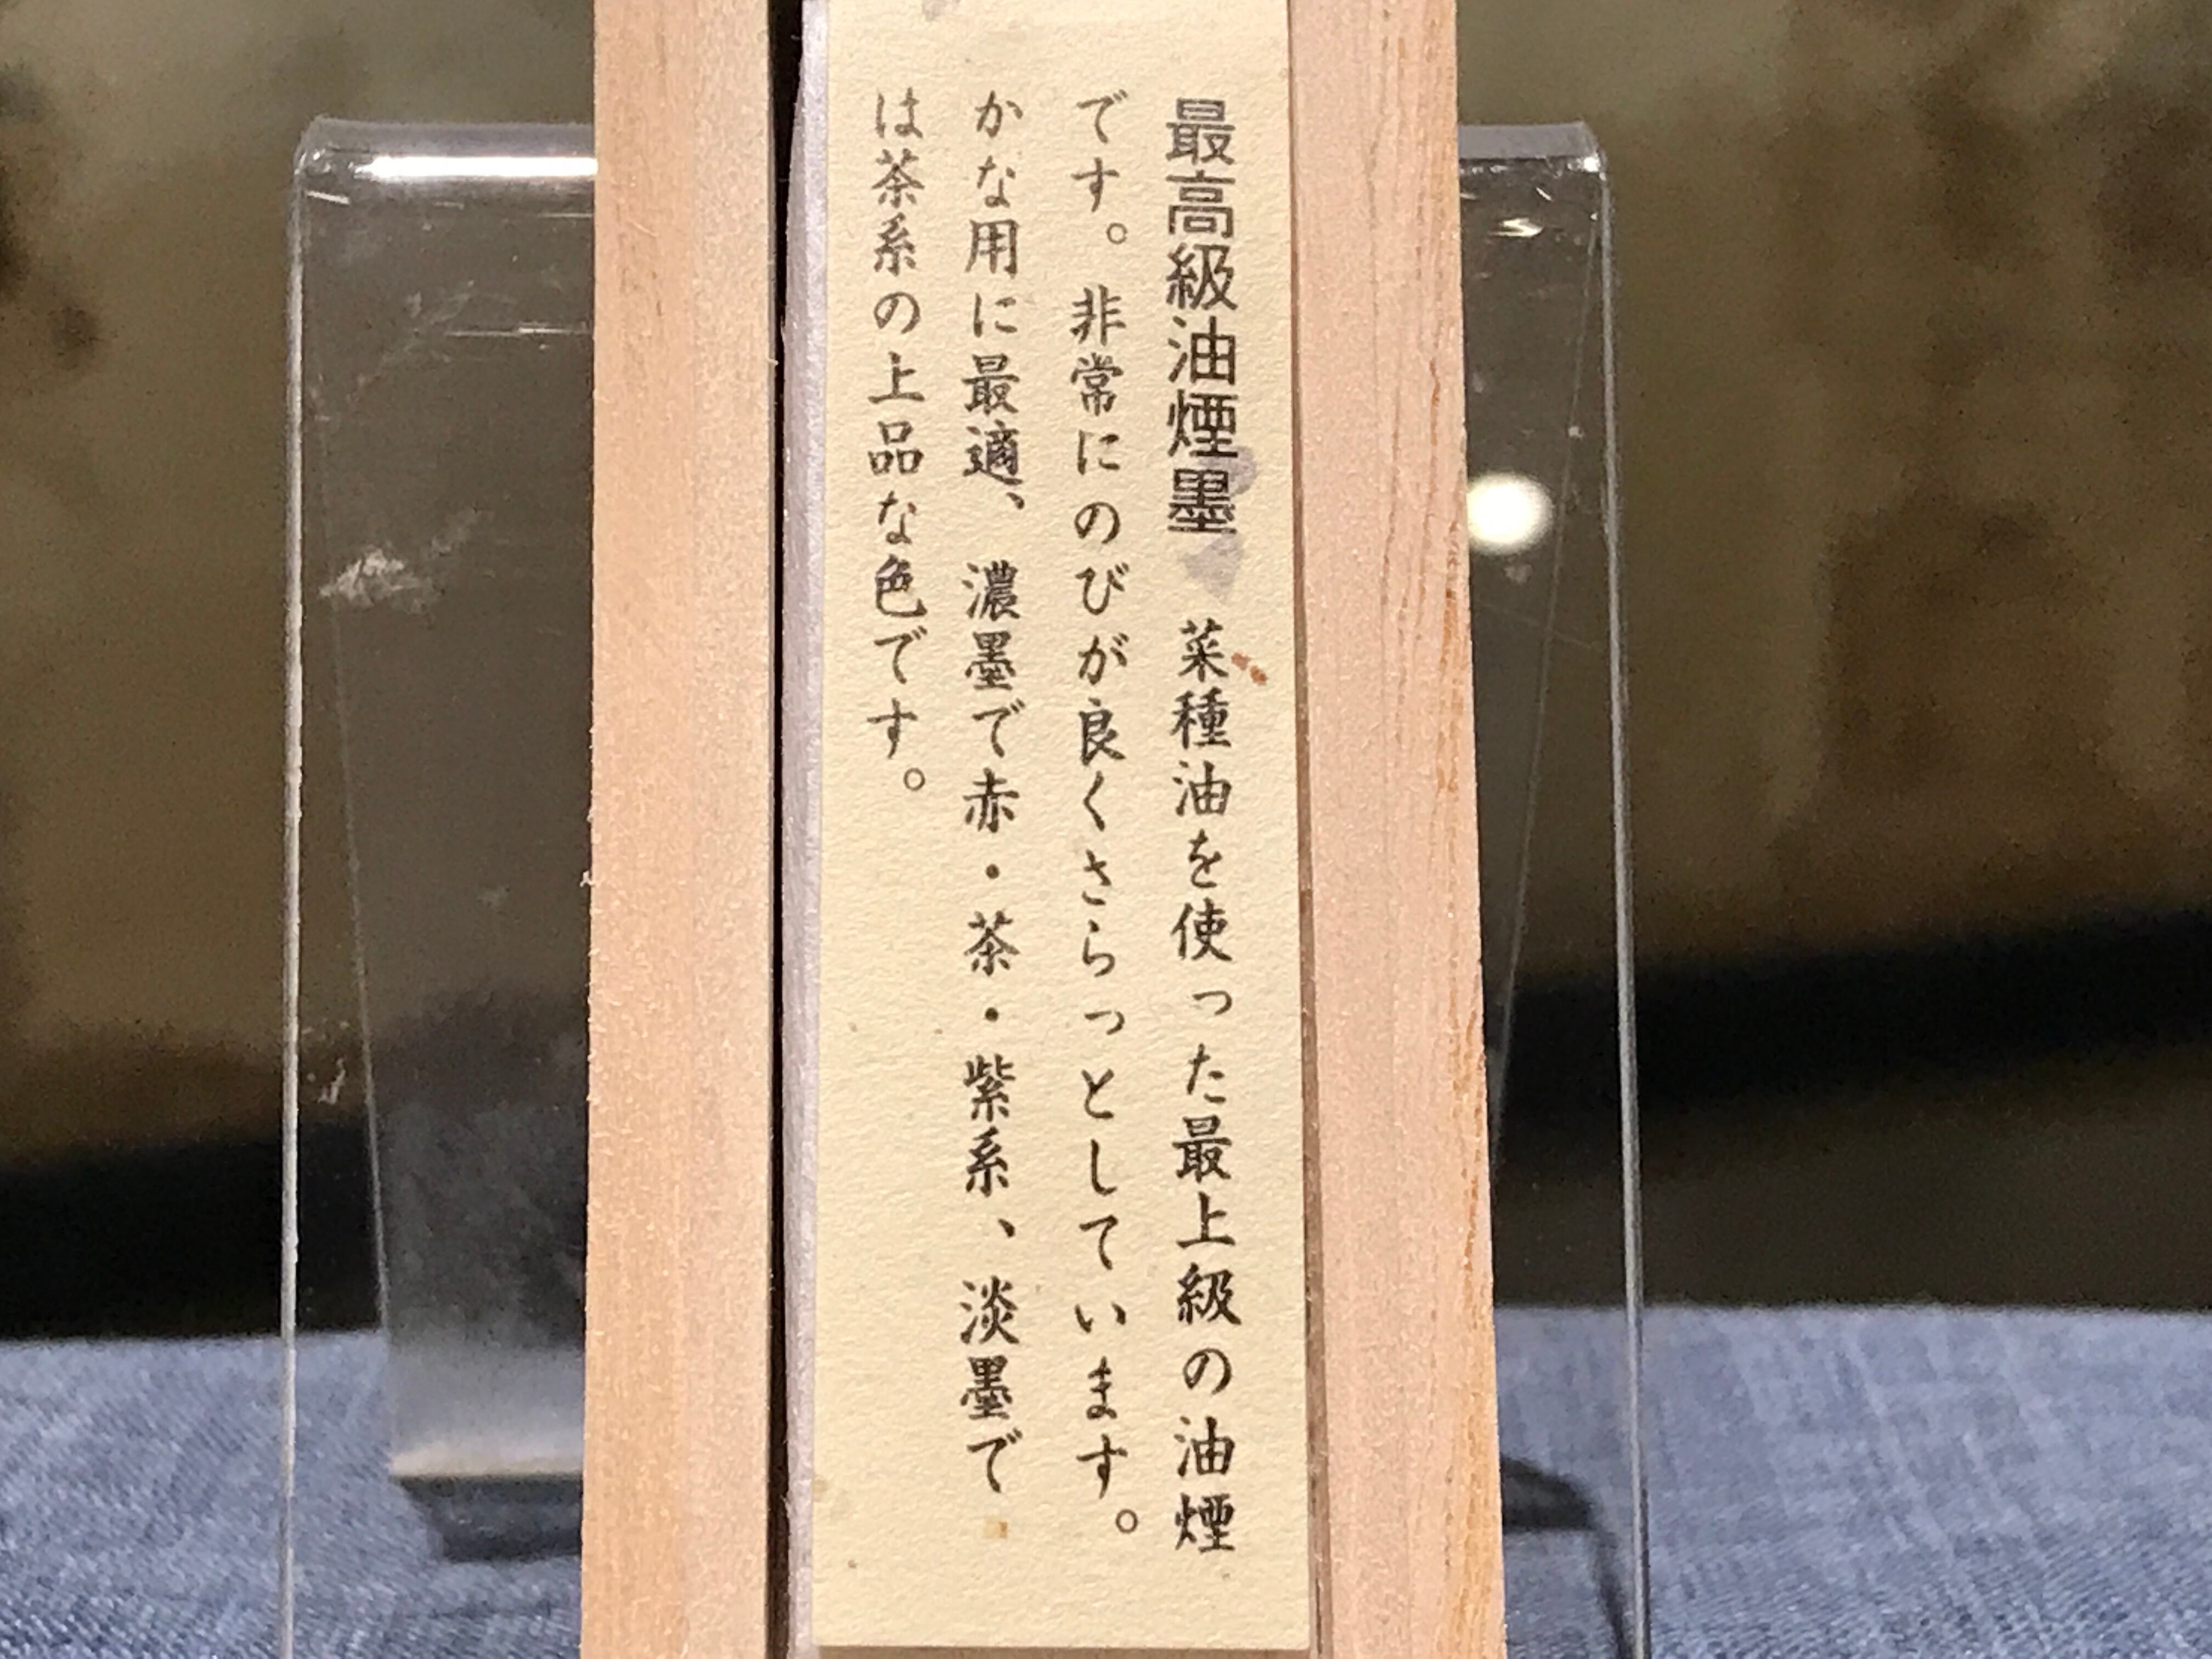 最高級油煙墨 菜種油を使った最上級の油煙
です。非常にのびが良くさらっとしています。
かな用に最適、濃墨で赤・茶・紫系、淡墨で
は茶系の上品な色です。